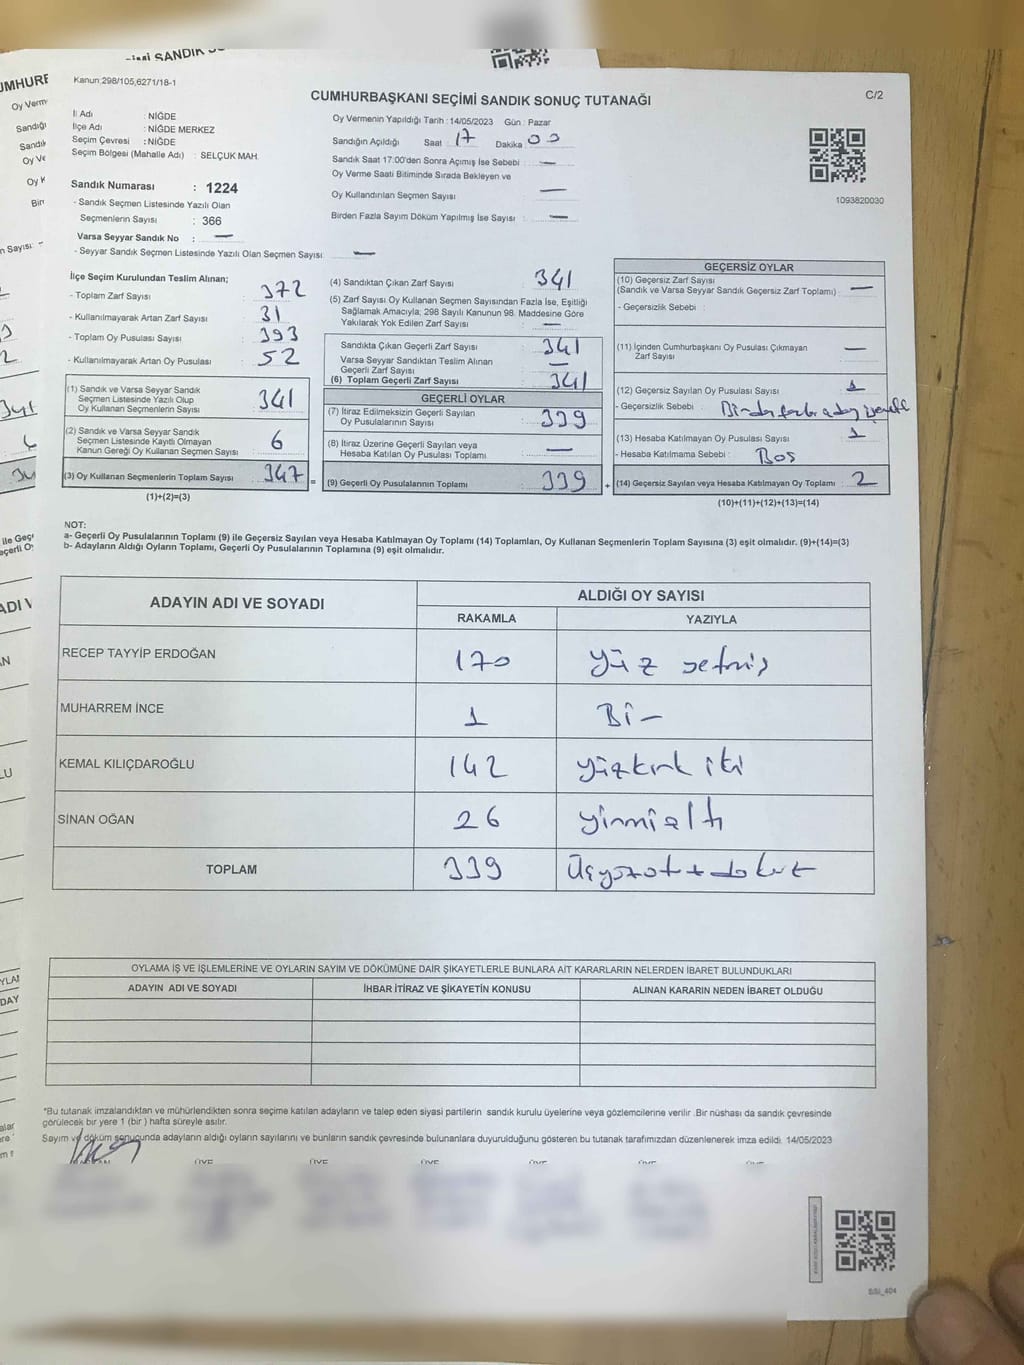 Kanun:298/105,6271/18-1
C/2
CUMHURBAŞKANI SEÇİMİ SANDIK SONUÇ TUTANAĞI
İl Adı : NİĞDE
İlçe Adı : NİĞDE MERKEZ
Seçim Çevresi : NİĞDE
Seçim Bölgesi (Mahalle Adı) : SELÇUK MAH.
Oy Vermenin Yapıldığı Tarih : 14/05/2023 Gün : Pazar
Sandığın Açıldığı Saat 17 Dakika 03
Sandık Saat 17:00'den Sonra Açımış İse Sebebi : —
Oy Verme Saati Bitiminde Sırada Bekleyen ve
Oy Kullandırılan Seçmen Sayısı —
Birden Fazla Sayım Döküm Yapılmış İse Sayısı : —
1093820030
Sandık Numarası : 1224
- Sandık Seçmen Listesinde Yazılı Olan
Seçmenlerin Sayısı : 366
Varsa Seyyar Sandık No : —
- Seyyar Sandık Seçmen Listesinde Yazılı Olan Seçmen Sayısı: —
İlçe Seçim Kurulundan Teslim Alınan;
- Toplam Zarf Sayısı 372
- Kullanılmayarak Artan Zarf Sayısı : 31
- Toplam Oy Pusulası Sayısı : 393
- Kullanılmayarak Artan Oy Pusulası : 52
(1) Sandık ve Varsa Seyyar Sandık
Seçmen Listesinde Yazılı Olup
Oy Kullanan Seçmenlerin Sayısı 341
(2) Sandık ve Varsa Seyyar Sandık
Seçmen Listesinde Kayıtlı Olmayan
Kanun Gereği Oy Kullanan Seçmen Sayısı : 6
(3) Oy Kullanan Seçmenlerin Toplam Sayısı : 347
(1)+(2)=(3)
(4) Sandıktan Çıkan Zarf Sayısı : 341
(5) Zarf Sayısı Oy Kullanan Seçmen Sayısından Fazla İse, Eşitliği
Sağlamak Amacıyla; 298 Sayılı Kanunun 98. Maddesine Göre
Yakılarak Yok Edilen Zarf Sayısı : —
Sandıkta Çıkan Geçerli Zarf Sayısı : 341
Varsa Seyyar Sandıktan Teslim Alınan
Geçerli Zarf Sayısı : —
(6) Toplam Geçerli Zarf Sayısı : 341
GEÇERLİ OYLAR
(7) İtiraz Edilmeksizin Geçerli Sayılan
Oy Pusulalarının Sayısı : 339
(8) İtiraz Üzerine Geçerli Sayılan veya
Hesaba Katılan Oy Pusulası Toplamı : —
(9) Geçerli Oy Pusulalarının Toplamı : 339
GEÇERSİZ OYLAR
(10) Geçersiz Zarf Sayısı
(Sandık ve Varsa Seyyar Sandık Geçersiz Zarf Toplamı) : —
- Geçersizlik Sebebi :
(11) İçinden Cumhurbaşkanı Oy Pusulası Çıkmayan
Zarf Sayısı —
(12) Geçersiz Sayılan Oy Pusulası Sayısı : 1
- Geçersizlik Sebebi : Birden fazla aday
(13) Hesaba Katılmayan Oy Pusulası Sayısı : 1
- Hesaba Katılmama Sebebi : Boş
(14) Geçersiz Sayılan veya Hesaba Katılmayan Oy Toplamı : 2
(10)+(11)+(12)+(13)=(14)
NOT:
a- Geçerli Oy Pusulalarının Toplamı (9) ile Geçersiz Sayılan veya Hesaba Katılmayan Oy Toplamı (14) Toplamları, Oy Kullanan Seçmenlerin Toplam Sayısına (3) eşit olmalıdır. (9)+(14)=(3)
b- Adayların Aldığı Oyların Toplamı, Geçerli Oy Pusulalarının Toplamına (9) eşit olmalıdır.
ADAYIN ADI VE SOYADI
ALDIĞI OY SAYISI
RAKAMLA YAZIYLA
RECEP TAYYİP ERDOĞAN 170 yüz yetmiş
MUHARREM İNCE 1 Bir
KEMAL KILIÇDAROĞLU 142 yüzkırk iki
SİNAN OĞAN 26 yirmialtı
TOPLAM 339 Üçyüzotuzdokuz
OYLAMA İŞ VE İŞLEMLERİNE VE OYLARIN SAYIM VE DÖKÜMÜNE DAİR ŞİKAYETLERLE BUNLARA AİT KARARLARIN NELERDEN İBARET BULUNDUKLARI
ADAYIN ADI VE SOYADI İHBAR İTİRAZ VE ŞİKAYETİN KONUSU ALINAN KARARIN NEDEN İBARET OLDUĞU
*Bu tutanak imzalandıktan ve mühürlendikten sonra seçime katılan adayların ve talep eden siyasi partilerin sandık kurulu üyelerine veya gözlemcilerine verilir .Bir nüshası da sandık çevresinde
görülecek bir yere 1 (bir ) hafta süreyle asılır.
Sayım ve döküm sonucunda adayların aldığı oyların sayılarını ve bunların sandık çevresinde bulunanlara duyurulduğunu gösteren bu tutanak tarafımızdan düzenlenerek imza edildi. 14/05/2023
BAŞKAN ÜYE ÜYE ÜYE ÜYE ÜYE
SSİ_404